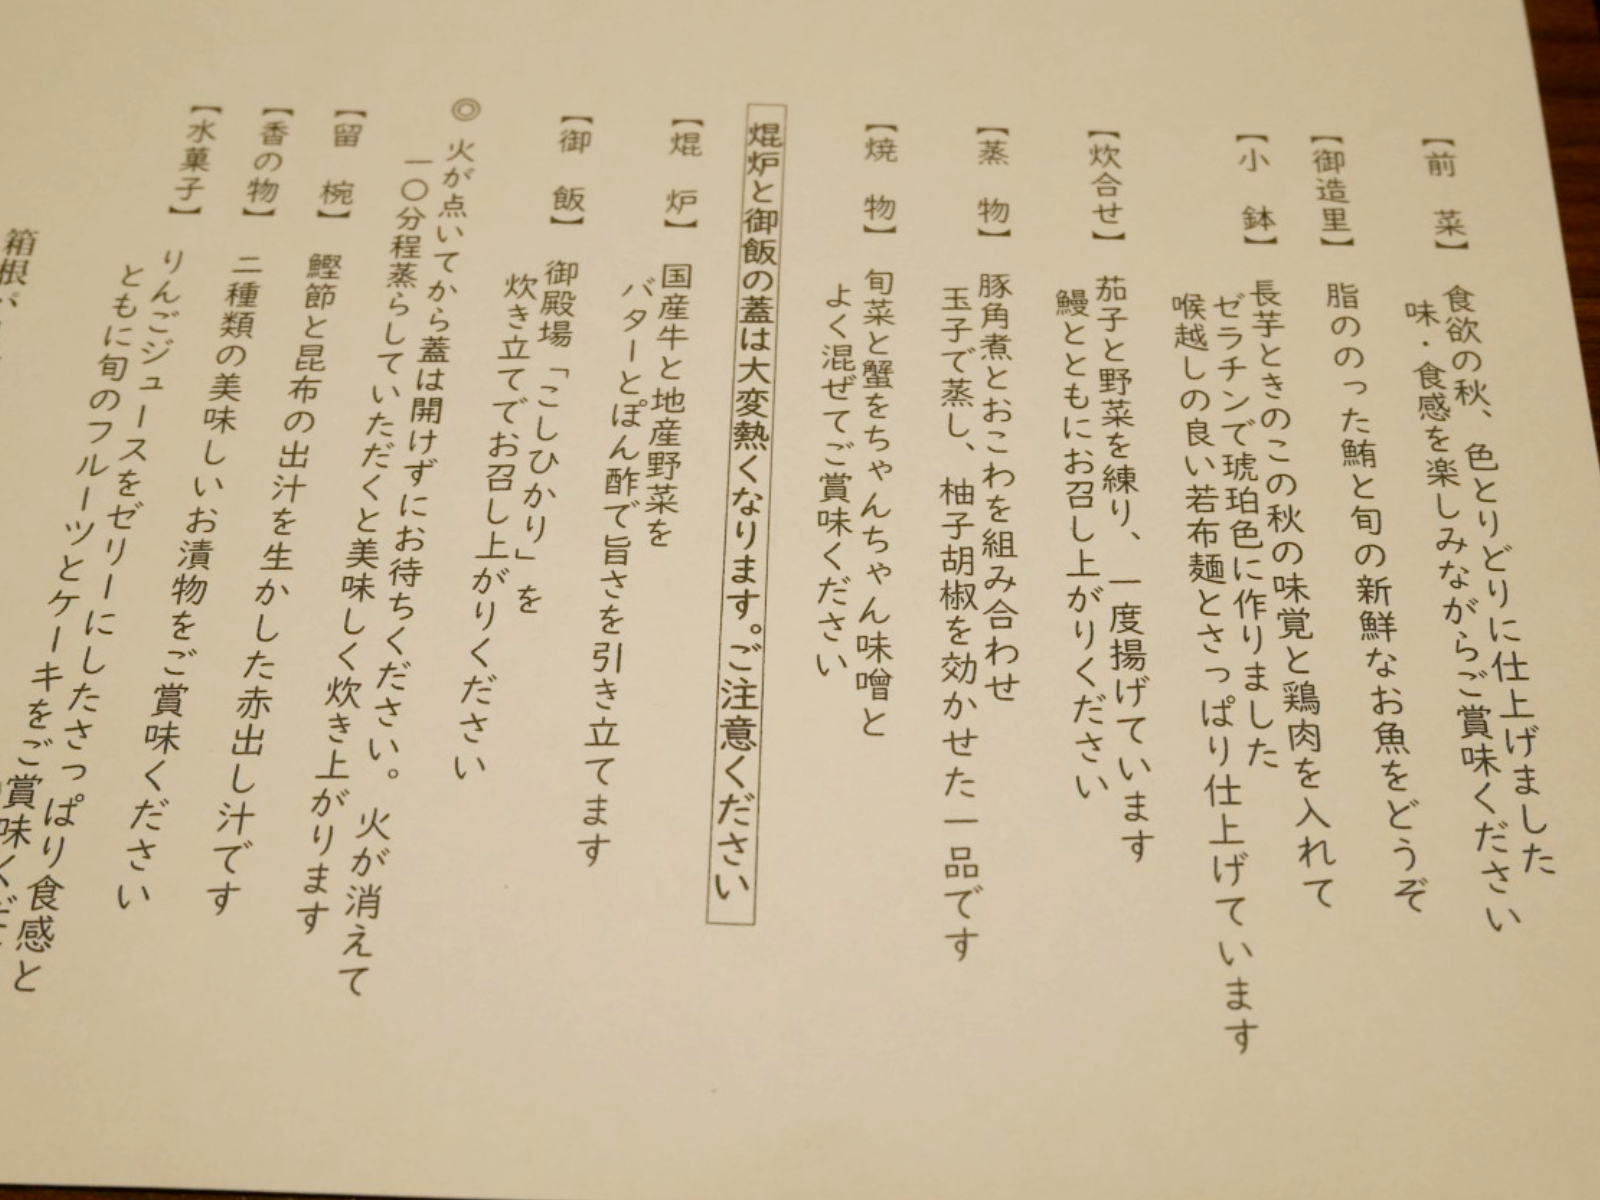 【前　菜】　食欲の秋、色とりどりに仕上げました
味・食感を楽しみながらご賞味ください
【御造里】　脂ののった鮪と旬の新鮮なお魚をどうぞ
【小　鉢】　長芋ときのこの秋の味覚と鶏肉を入れて
ゼラチンで琥珀色に作りました
喉越しの良い若布麺とさっぱり仕上げています
【炊合せ】　茄子と野菜を練り、一度揚げています
鰻とともにお召し上がりください
【蒸　物】　豚角煮とおこわを組み合わせ
玉子で蒸し、柚子胡椒を効かせた一品です
【焼　物】　旬菜と蟹をちゃんちゃん味噌と
よく混ぜてご賞味ください
焜炉と御飯の蓋は大変熱くなります。ご注意ください
【焜　炉】　国産牛と地産野菜を
バターとぽん酢で旨さを引き立てます
【御　飯】　御殿場「こしひかり」を
炊き立てでお召し上がりください
◎　火が点いてから蓋は開けずにお待ちください。火が消えて
一〇分程蒸らしていただくと美味しく炊き上がります
【留　椀】　鰹節と昆布の出汁を生かした赤出し汁です
【香の物】　二種類の美味しいお漬物をご賞味ください
【水菓子】　りんごジュースをゼリーにしたさっぱり食感と
ともに旬のフルーツとケーキをご賞味くだ
箱根